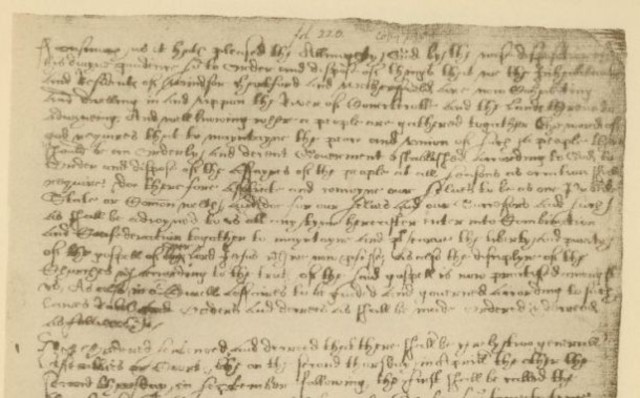 fol. 220.
it hath pleased the Allmighty God by the wise
his diuyne pruidence so to Order and dispose of things that we the Inhabitants
and Residents of Windsor Harteford and Wethersfield are now cohabiting
and dwelling in and vppon the River of Conectecotte and the Lands thereunto
adioyneing And well knowing where a people are gathered togather the word of
God requires that to mayntayne the peace and vnion of such a people there
should be an orderly and decent Gouerment established according to God, to
order and dispose of the affayres of the people at all seasons as occation shall
require doe therefore assotiate and conioyne our selues to be as one
State or Comonwelth, and doe for our selues and our Successors and such
as shall be adioyned to vs att any tyme hereafter enter into Combination
and Confederation togather to mayntayne and prsearue the liberty and purity
of the gospell of our lord Jesus wch we now prfesse as also the disciplyne of the
Churches wch according to the truth of the said gospell is now practised amongst
vs. As also in or Ciuell Affaires to be guided and gouerned according to such
Lawes Rules Orders and decrees as shall be made ordered & decreed
as followeth
It is Ordered and decreed that there shall be yerely two generall
Assemblies or Courts, the on the second thursday in Aprill, the other the
second thursday in September following, the first shall be called the